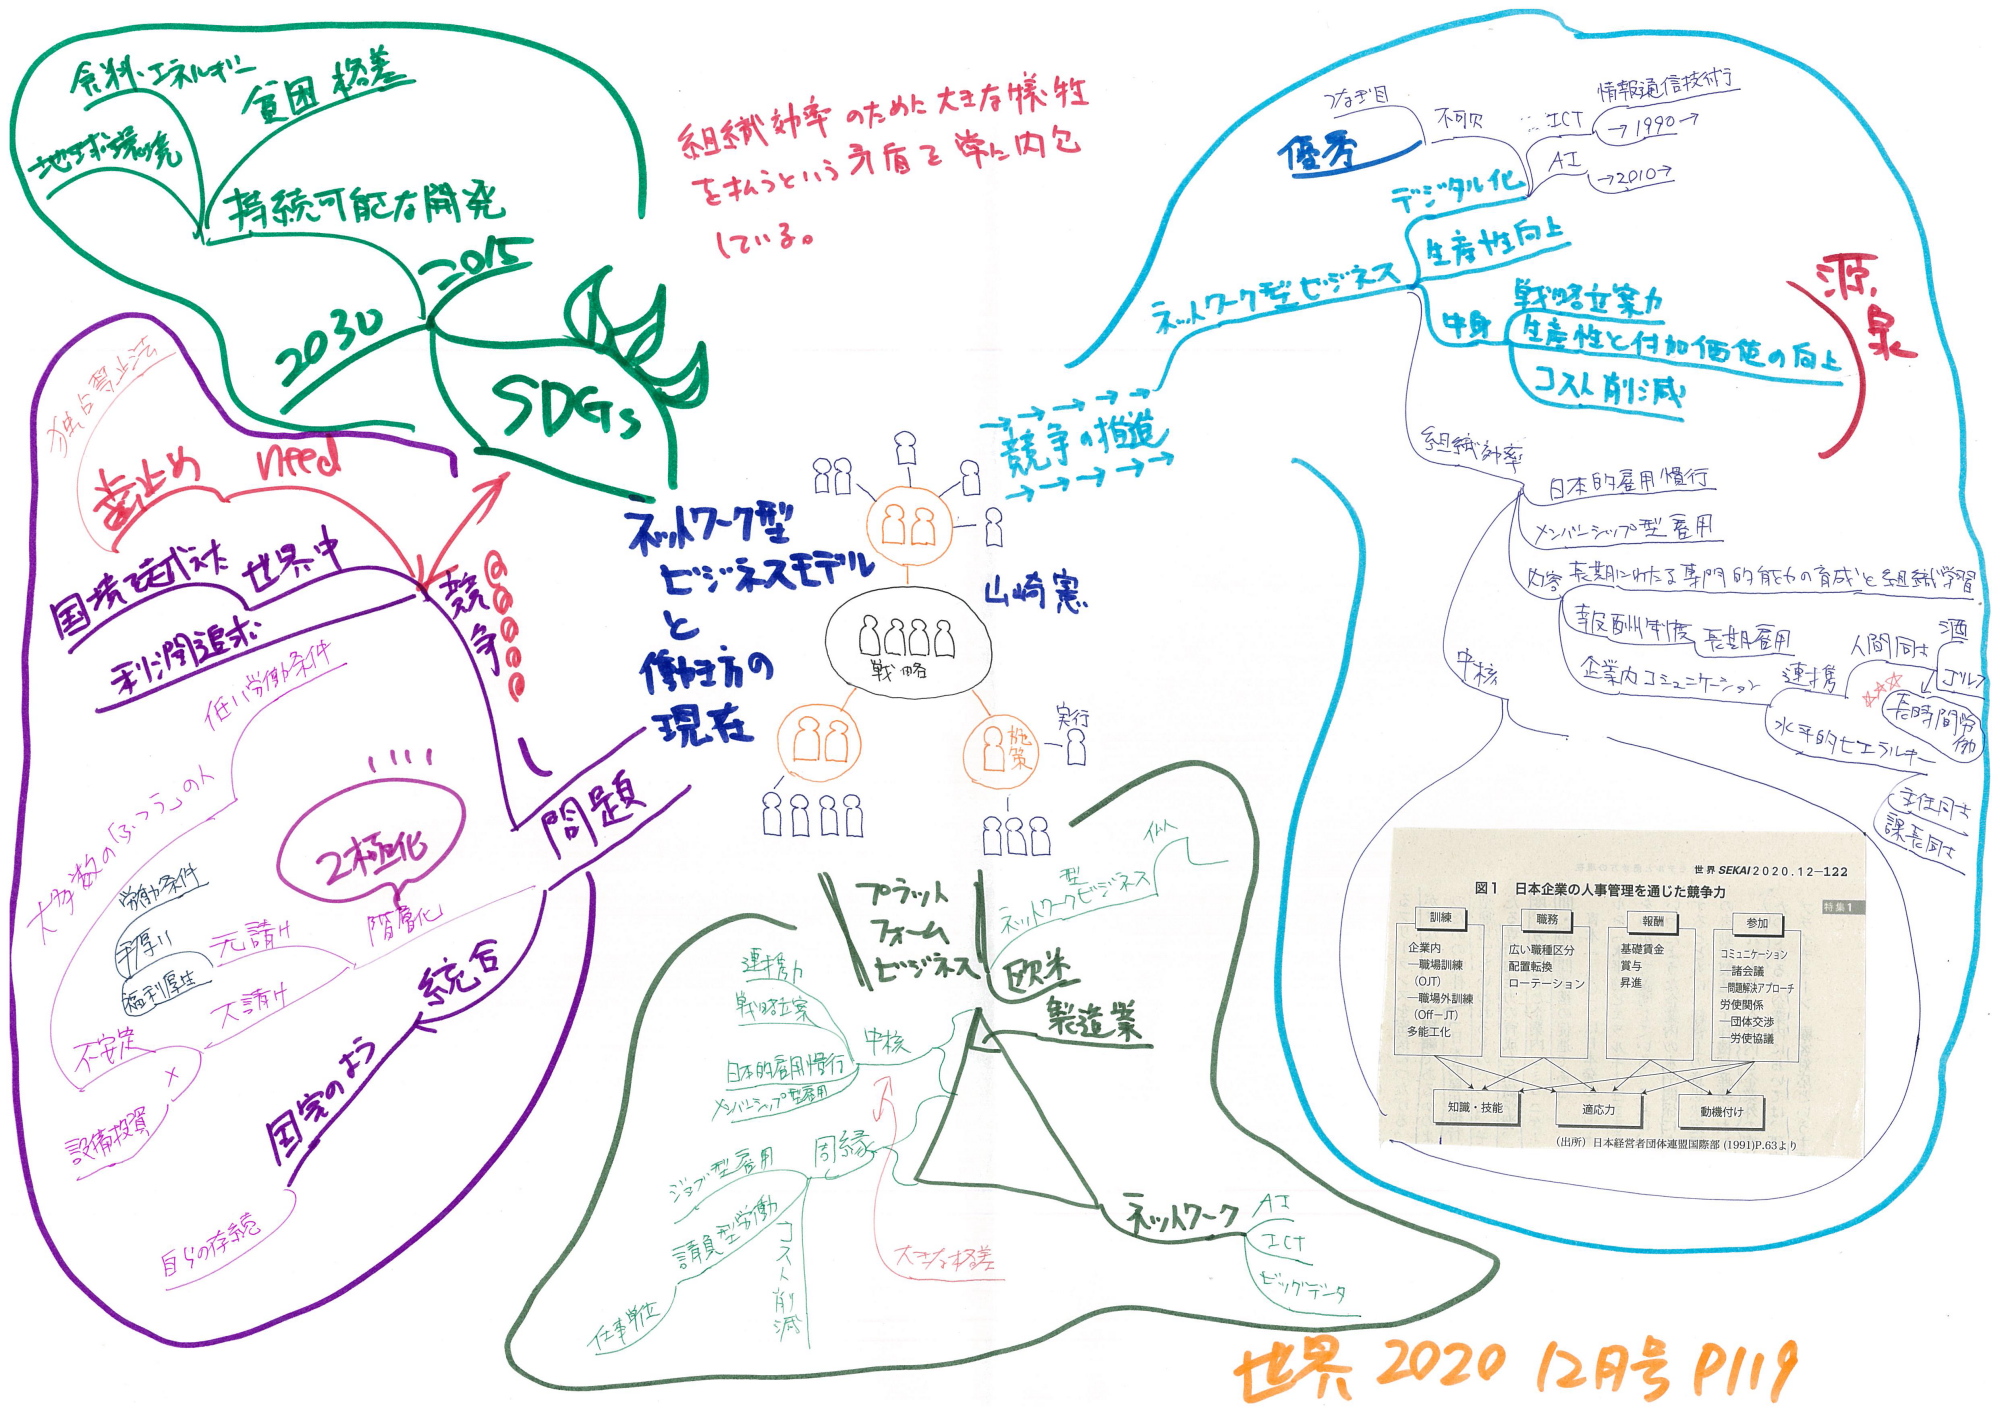 食料・エネルギー
貧困 格差
地球環境
持続可能な開発
2015
2030
SDGs
組織効率のために大きな犠牲
を払うという矛盾を常に内包
している。
独占禁止法
歯止め need
国境を越えた 世界中
利潤追求
競争
低い労働条件
大多数の「ふつう」の人
2極化
階層化
元請け
労働条件
手厚い
福利厚生
下請け
不安定
×
設備投資
問題
統合
国家のよう
自らの存続
ネットワーク型
ビジネスモデル
と
働き方の
現在
山崎憲
戦略
施策
実行
競争の構造
ネットワーク型ビジネス
デジタル化
不可欠
つなぎ目
優秀
ICT
情報通信技術
→1990→
AI
→2010→
生産性向上
中身
戦略立案力
生産性と付加価値の向上
コスト削減
源泉
組織効率
日本的雇用慣行
メンバーシップ型雇用
内容
長期にわたる専門的能力の育成と組織学習
報酬制度 長期雇用
企業内コミュニケーション
連携
人間同士
酒
ゴルフ
長時間労働
水平的ヒエラルキー
主任同士
課長同士
中核
世界 SEKAI 2020.12—122
図1 日本企業の人事管理を通じた競争力
特集1
訓練
企業内
—職場訓練
(OJT)
—職場外訓練
(Off-JT)
多能工化
職務
広い職種区分
配置転換
ローテーション
報酬
基礎賃金
賞与
昇進
参加
コミュニケーション
—諸会議
—問題解決アプローチ
労使関係
—団体交渉
—労使協議
知識・技能
適応力
動機付け
(出所) 日本経営者団体連盟国際部 (1991)P.63より
プラット
フォーム
ビジネス
欧米
ネットワークビジネス
型
製造業
中核
連携力
戦略立案
日本的雇用慣行
メンバーシップ型雇用
周縁
ジョブ型雇用
請負型労働
仕事単位
コスト削減
大きな格差
ネットワーク
AI
ICT
ビッグデータ
世界 2020 12月号 P119